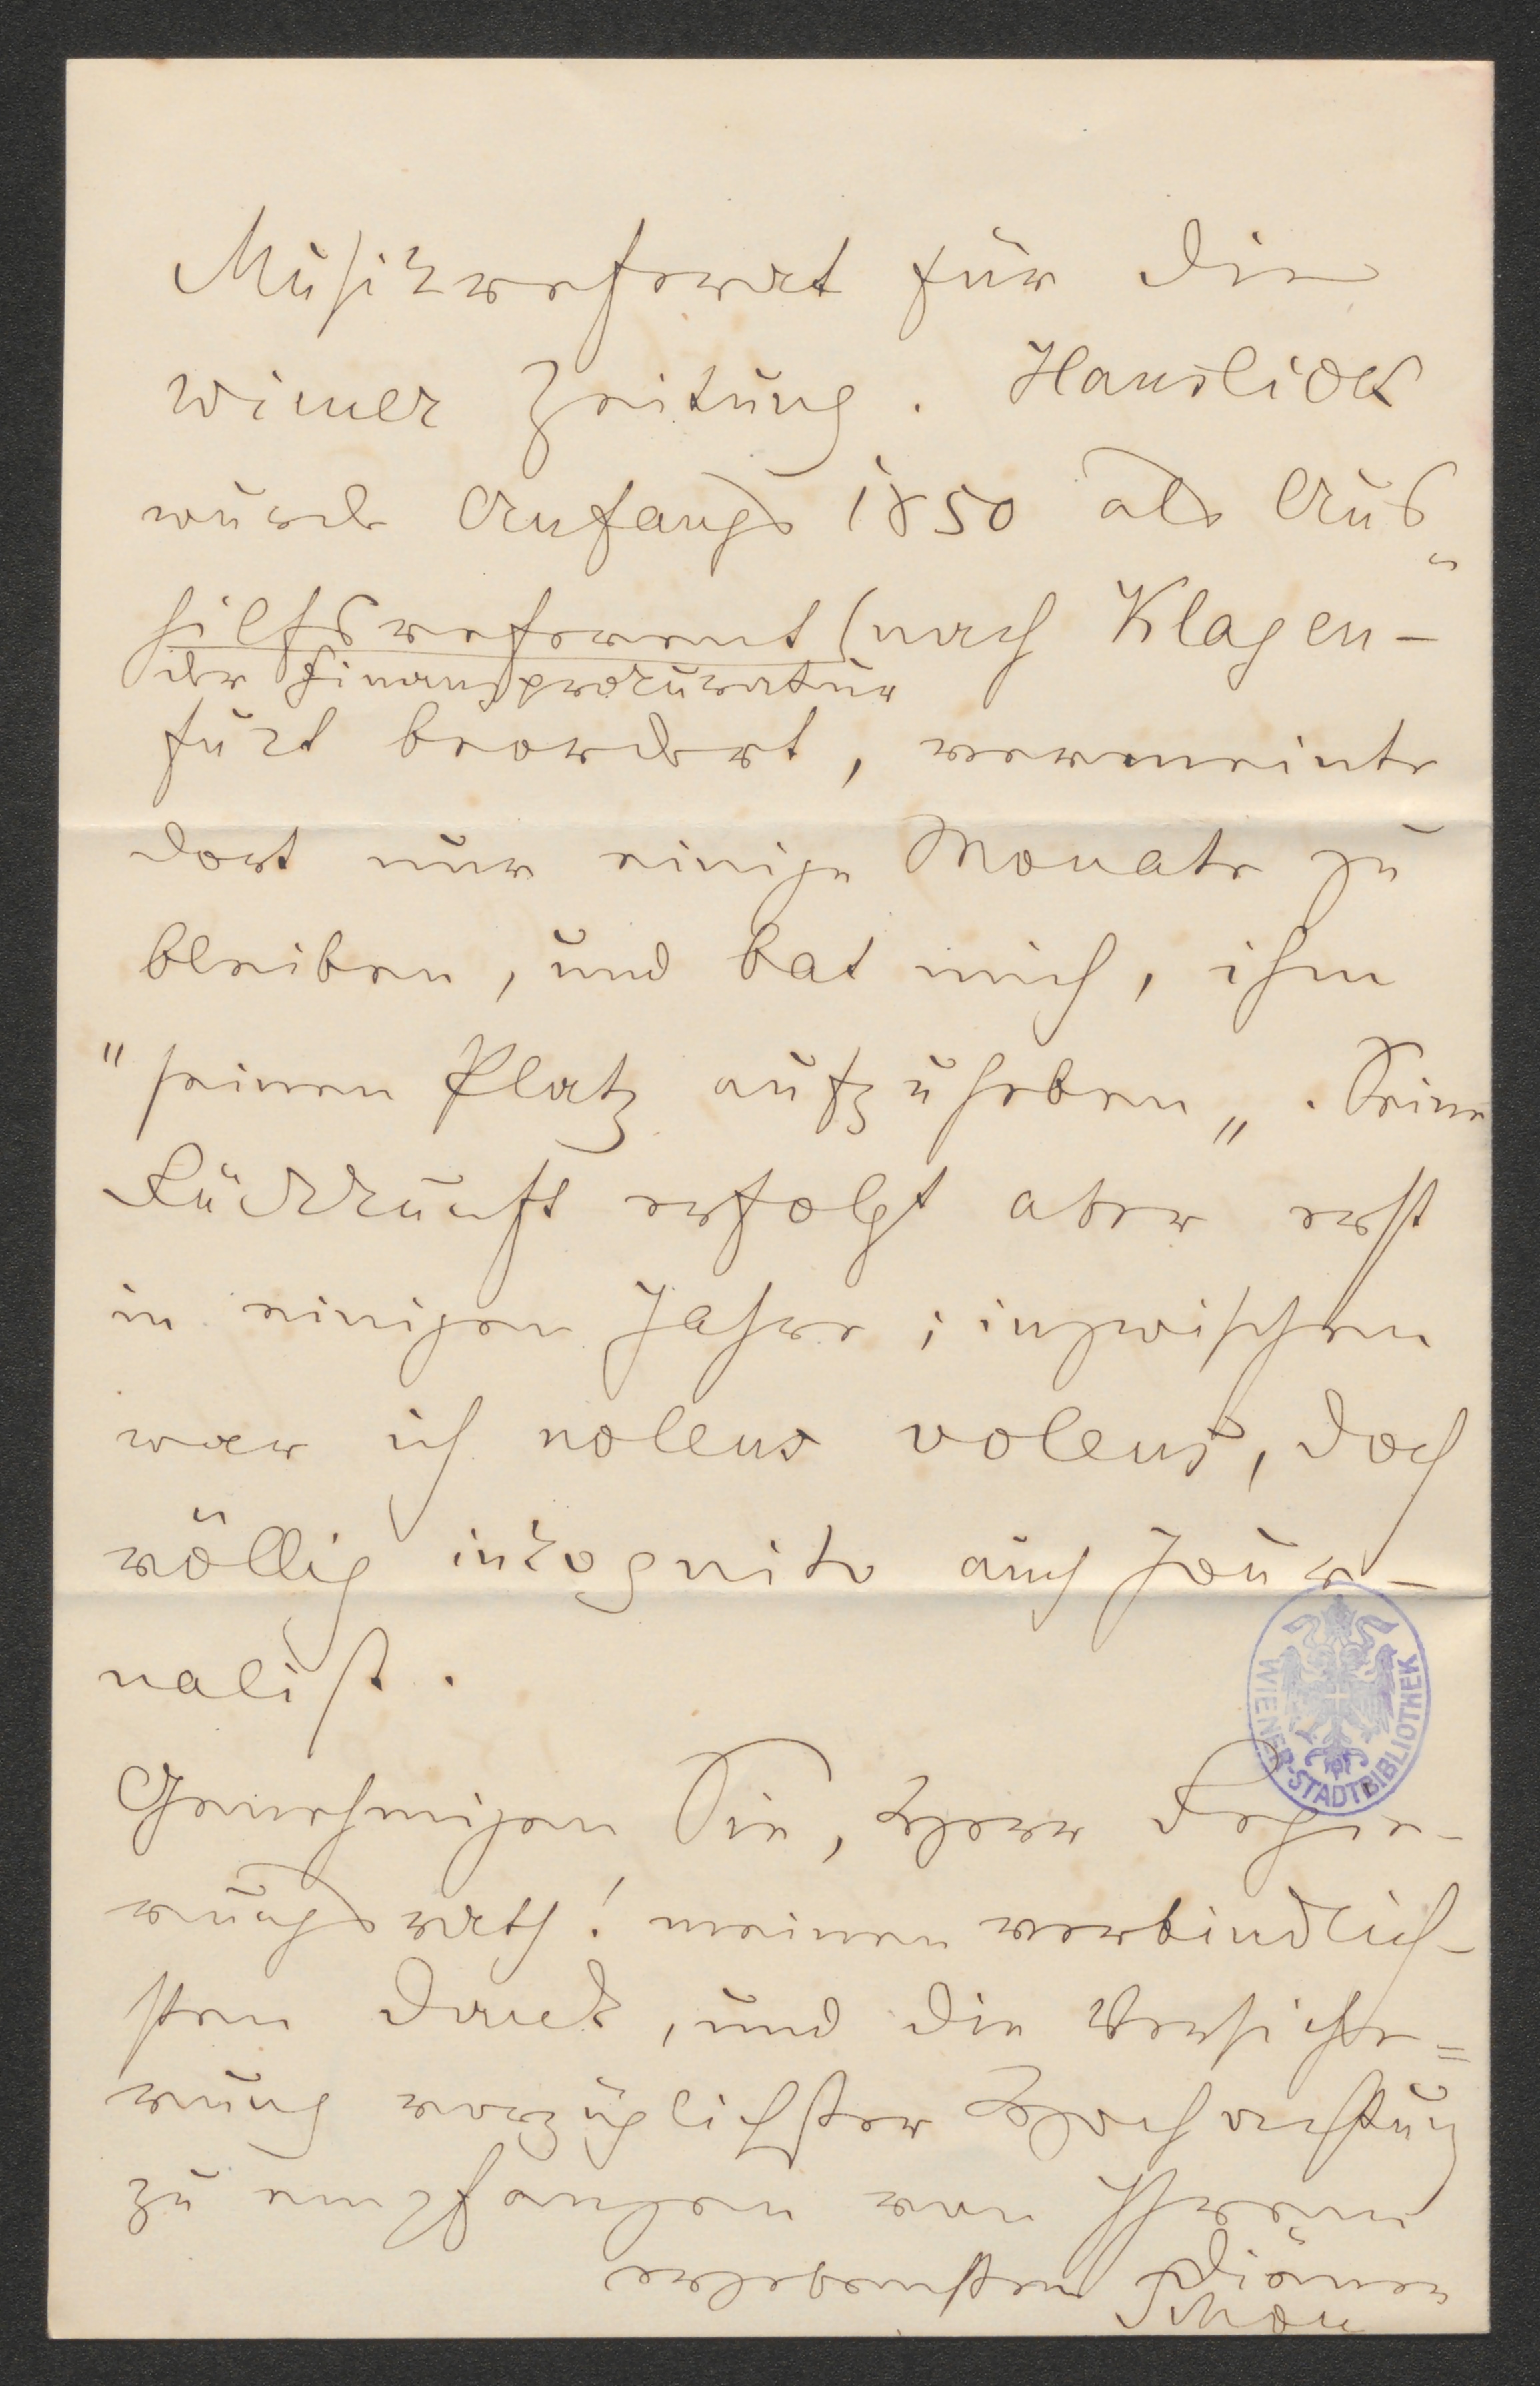 Musikreferat für die
Wiener Zeitung. Hanslick
wurde Anfangs 1850 als Aus„
hilfsreferent (nach Klagen-
der Finanzprocuratur
furt beordert, vermeinte
dort nur einige Monate zu
bleiben, und bat mich, ihm
"seinen Platz aufzuheben„. Seine
Rückkunft erfolgt aber erst
in einigen Jahre; inzwischen
war ich nolens volens, doch
völlig inkognito auch Jour-
nalist.
Genehmigen Sie, Herr Regie-
rungsrath! meinen verbindlich-
sten Dank, und die Versiche=
rung vorzüglichster Hochachtung
zu empfangen von Ihrem
ergebensten Diener
Schön
WIENER-STADTBIBLIOTHEK